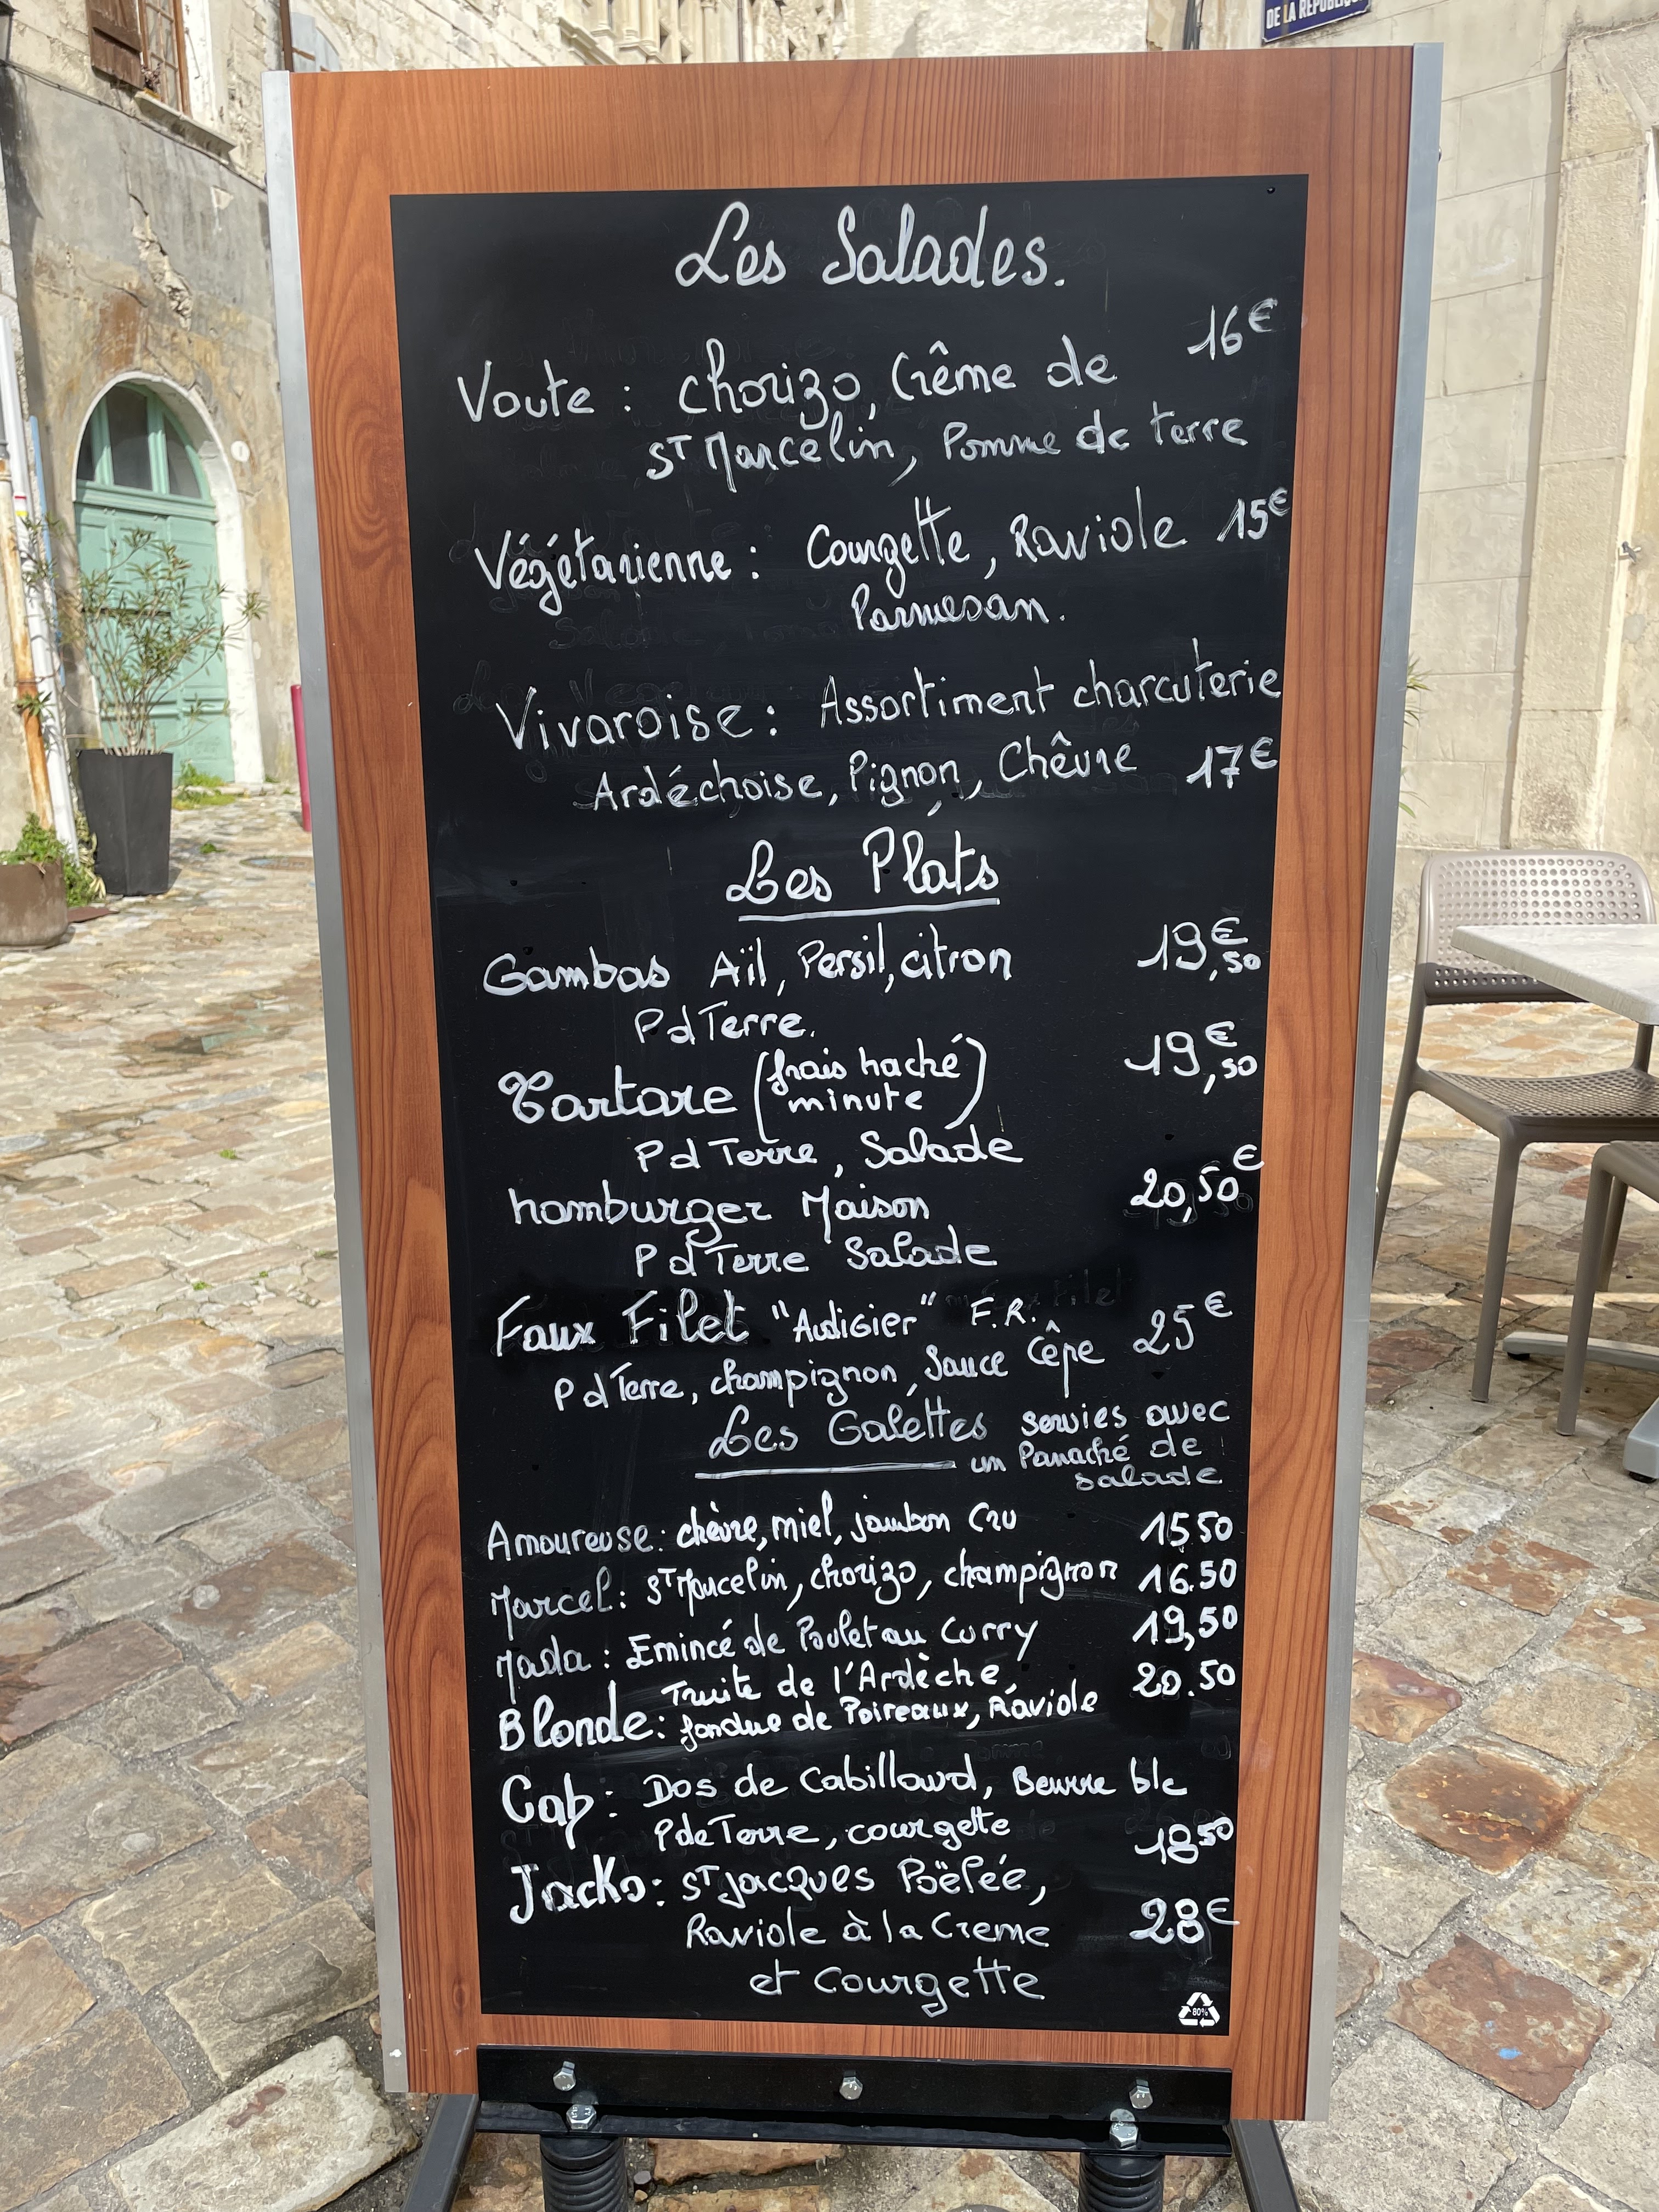 DE LA RÉPUBLIQUE
Les Salades.
Voute : chorizo, Crême de 16€
ST Marcelin, Pomme de terre
Végétarienne : Courgette, Raviole 15€
Parmesan.
Vivaroise : Assortiment charcuterie
Ardéchoise, Pignon, Chêvre 17€
Les Plats
Gambas Aïl, Persil, citron 19,50€
P d Terre.
Tartare (frais haché 19,50€
minute)
P d Terre, Salade
hamburger Maison 20,50€
P d Terre Salade
Faux Filet "Audigier" F.R. 25€
P d Terre, champignon, Sauce Cêpe
Les Galettes servies avec
un Panaché de
salade
Amoureuse : chèvre, miel, jambon Cru 15,50
Marcel : ST Marcelin, chorizo, champignon 16.50
Mada : Emincé de Poulet au Curry 19,50
Truite de l'Ardèche, 20.50
Blonde : fondue de Poireaux, Raviole
Cap : Dos de Cabillaud, Beurre blc
P de Terre, courgette 18,50
Jacko : ST Jacques Poëlée,
Raviole à la Creme 28€
et Courgette
80%